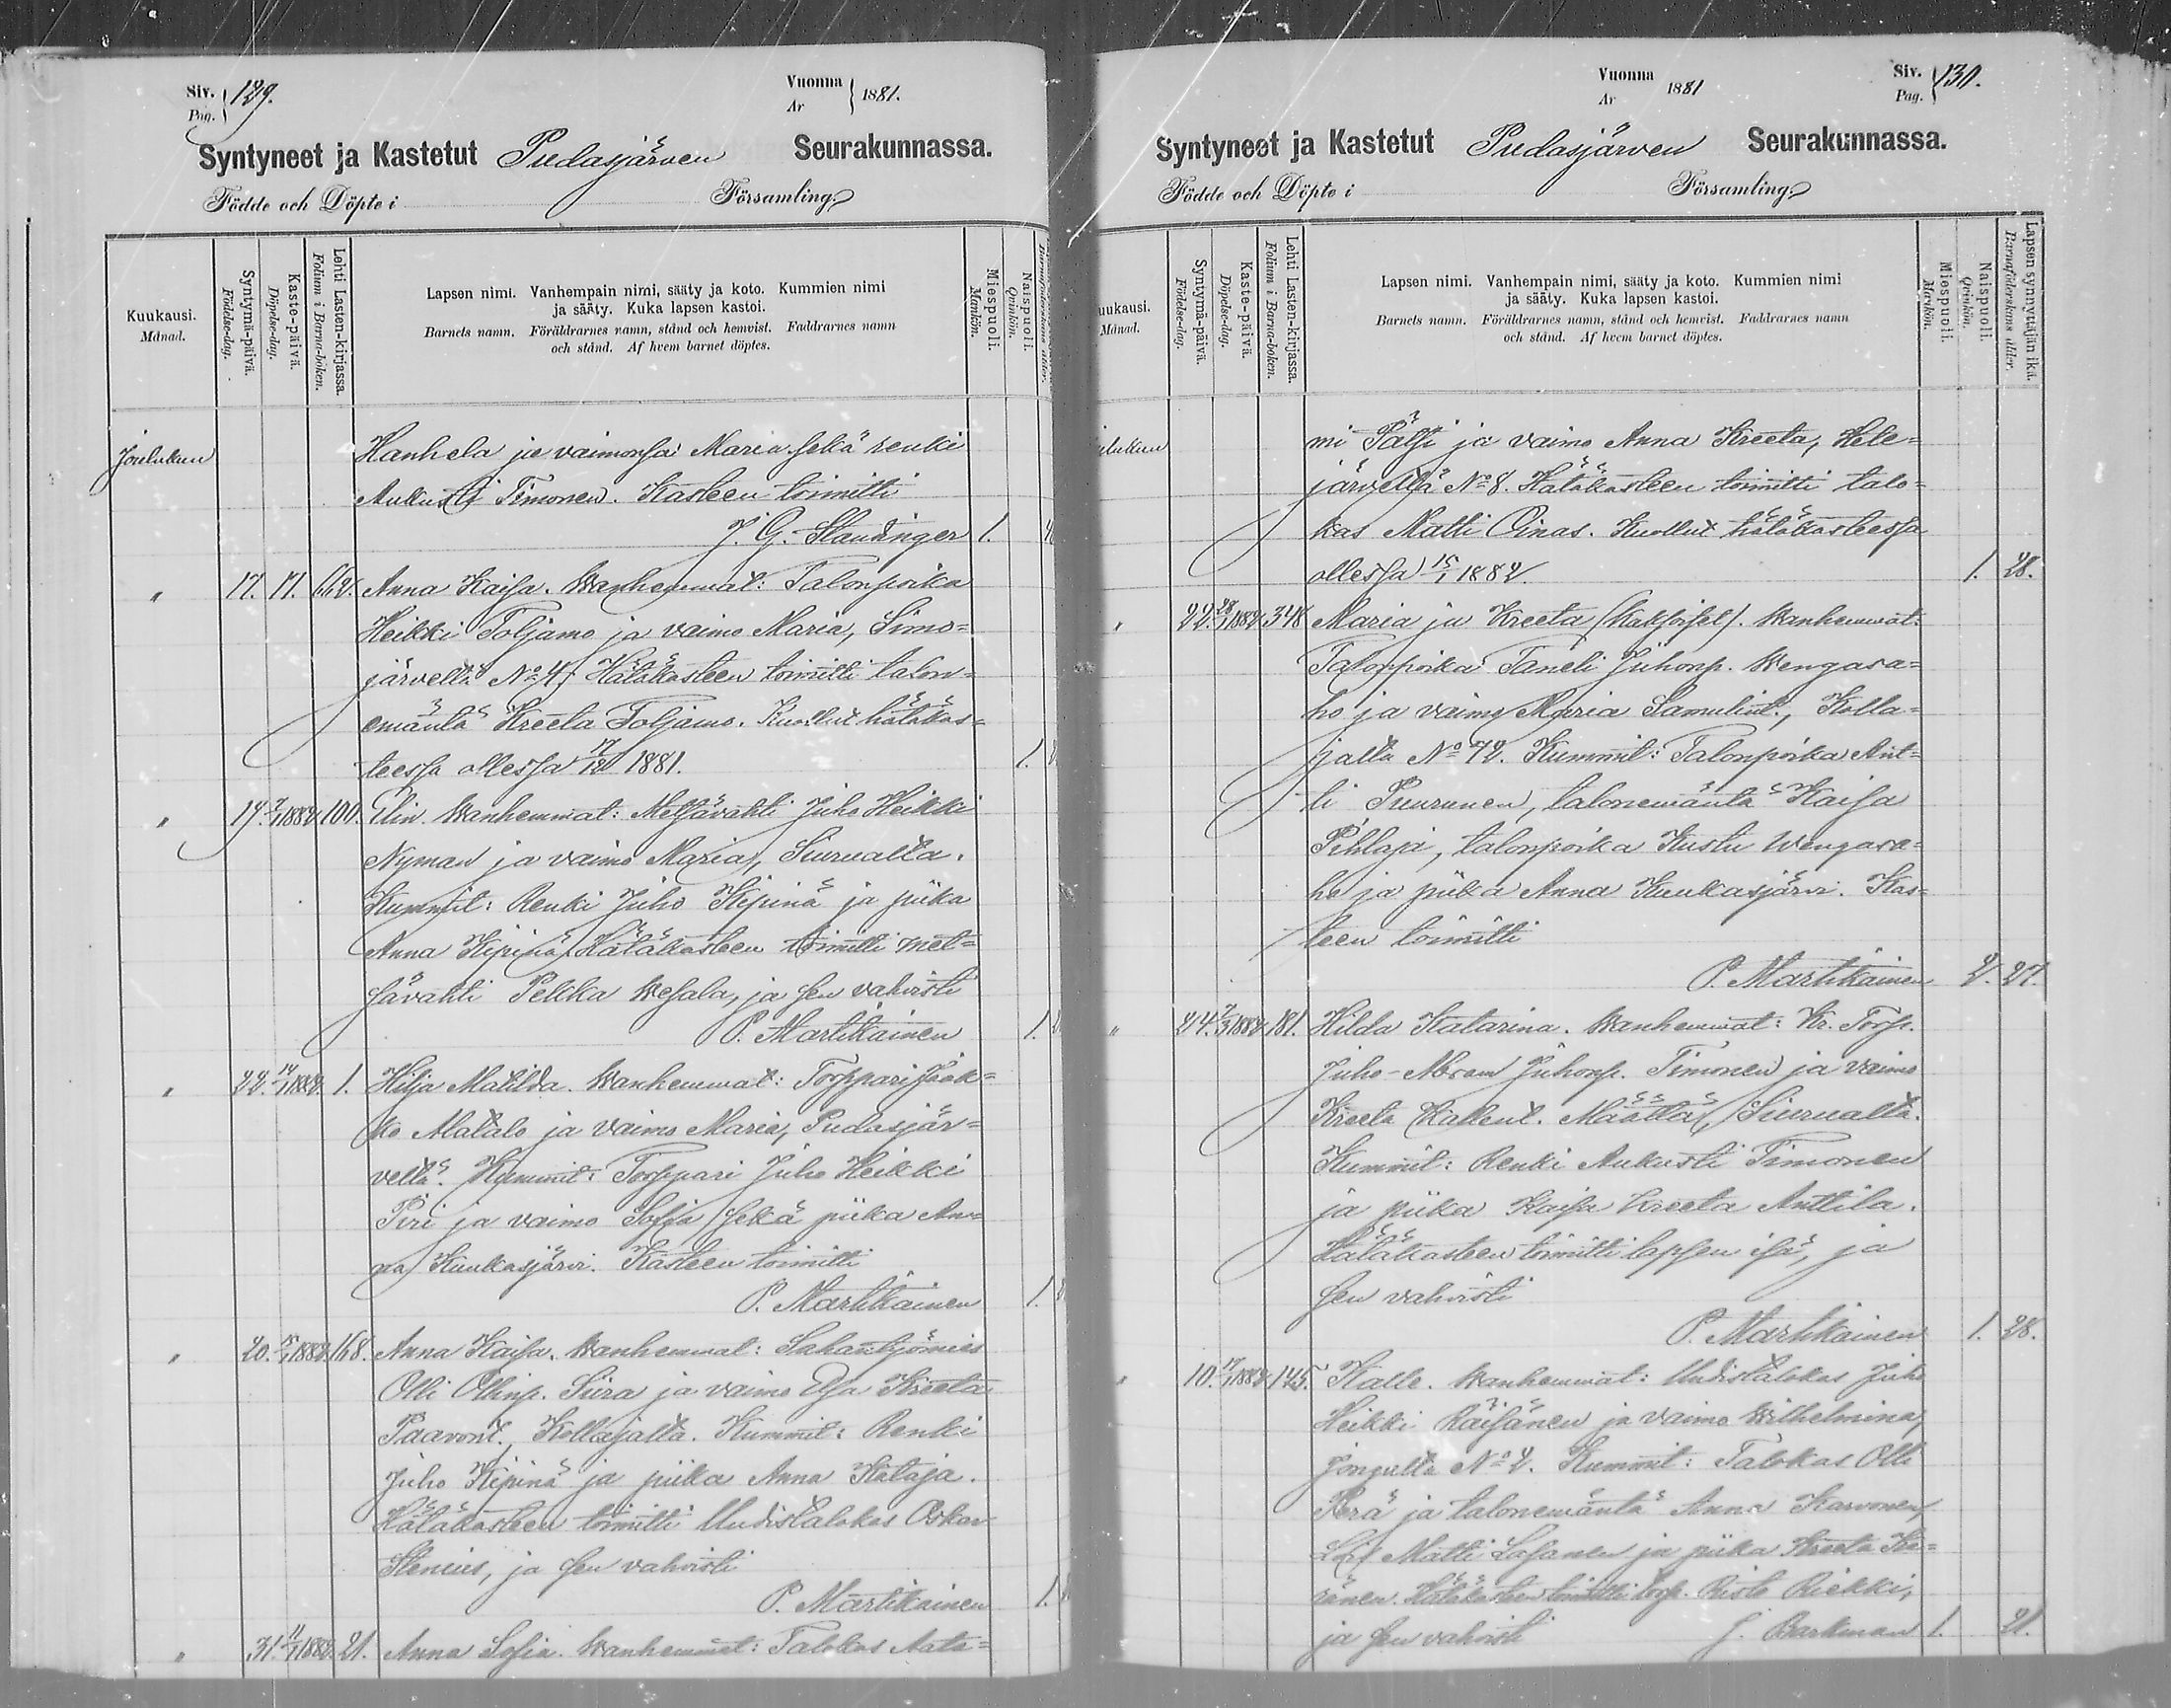 Siv. 129.
Pag.
Vuonna 1881.
Ar
Syntyneet ja Kastetut Pudasjärven Seurakunnassa.
Födde och Döpte i Församling
Kuukausi.
Månad.
Syntymä-päivä.
Födelse-dag.
Kaste-päivä.
Döpelse-dag.
Lehti Lasten-kirjassa.
Folium i Barna-boken.
Lapsen nimi. Vanhempain nimi, sääty ja koto. Kummien nimi
ja sääty. Kuka lapsen kastoi.
Barnets namn. Föräldrarnes namn, stånd och hemvist. Faddrarnes namn
och stånd. Af hvem barnet döptes.
Miespuoli.
Mankön.
Naispuoli.
Qvinkön.
Joulukuu Hanhela ja vaimonsa Maria sekä renki
Aukusti Timonen. Kasteen toimitti
J. G. Staudinger 1.
" 17. 17. 662. Anna Kaisa. Wanhemmat: Talonpoika
Heikki Toljamo ja vaimo Maria, Simo=
järveltä No 4. Hätäkasteen toimitti talon=
emäntä Kreeta Toljamo. Kuollut hätäkas=
teessa ollessa 17/12 1881. 1.
" 19. 7/1 1882 100. Elin. Wanhemmat: Metsävahti Juho Heikki
Nyman ja vaimo Maria, Siurualta.
Kummit: Renki Juho Kipinä ja piika
Anna Kipinä. Hätäkasteen toimitti met=
sävahti Pekka Wesala, ja sen vahvisti
P. Martikainen 1.
" 22. 14/1 1882 1. Hilja Matilda. Wanhemmat: Torppari Jaak=
ko Alatalo ja vaimo Maria, Pudasjär=
veltä. Kummit: Torppari Juho Heikki
Piri ja vaimo Sofia sekä piika An=
na Kuukasjärvi. Kasteen toimitti
P. Martikainen 1.
" 20. 15/1 1882 168. Anna Kaisa. Wanhemmat: Sahantyömies
Olli Ollinp. Siira ja vaimo Elsa Kreeta
Paavont., Kollajalta. Kummit: Renki
Juho Kipinä ja piika Anna Kataja.
Hätäkasteen toimitti Uudistalokas Oskar
Stenius, ja sen vahvisti
P. Martikainen 1.
" 31. 11/1 1882. 21. Anna Sofia. Wanhemmat: Talokas Aata=
Vuonna 1881
Ar
Siv. 130.
Pag.
Syntyneet ja Kastetut Pudasjärven Seurakunnassa.
Födde och Döpte i Församling
uukausi.
Månad.
Syntymä-päivä.
Födelse-dag.
Kaste-päivä.
Döpelse-dag.
Lehti Lasten-kirjassa.
Folium i Barna-boken.
Lapsen nimi. Vanhempain nimi, sääty ja koto. Kummien nimi
ja sääty. Kuka lapsen kastoi.
Barnets namn. Föräldrarnes namn, stånd och hemvist. Faddrarnes namn
och stånd. Af hvem barnet döptes.
Miespuoli.
Mankön.
Naispuoli.
Qvinkön.
Lapsen synnyttäjän ikä.
Barnaföderskans ålder.
ulukuu mi Pätsi ja vaimo Anna Kreeta, Hete=
järveltä No 8. Hätäkasteen toimitti talo=
kas Matti Oinas. Kuollut hätäkasteessa
ollessa 15/1 1882. 1. 28.
" 22. 28/1 1882 348 Maria ja Kreeta (kaksoiset). Wanhemmat:
Talonpoika Taneli Juhonp. Wengasa=
ho ja vaimo Maria Samulint., Kolla=
jalta No 72. Kummit: Talonpoika Ant=
ti Puurunen, talonemäntä Kaisa
Pihlaja, talonpoika Kustu Wengasa=
ho ja piika Anna Kuukasjärvi. Kas=
teen toimitti
P. Martikainen 2. 27.
" 24. 7/3 1882 181. Hilda Katarina. Wanhemmat: Kr. Torp.
Juho-Abram Juhonp. Timonen ja vaimo
Kreeta Kallent. Määttä, Siurualta.
Kummit: Renki Aukusti Timonen
ja piika Kaisa Kreeta Anttila.
Hätäkasteen toimitti lapsen isä, ja
sen vahvisti
P. Martikainen 1. 28.
" 10. 17/1 1882 145. Kalle. Wanhemmat: Uudistalokas Juho
Heikki Räisänen ja vaimo Wilhelmina,
Jongulta No 2. Kummit: Talokas Olli
Perä ja talonemäntä Anna Karvonen,
Lois Matti Lasanen ja piika Kreeta
ränen. Hätäkasteen toimitti torp. Risto Riekki,
ja sen vahvisti J. Barkman 1. 21.